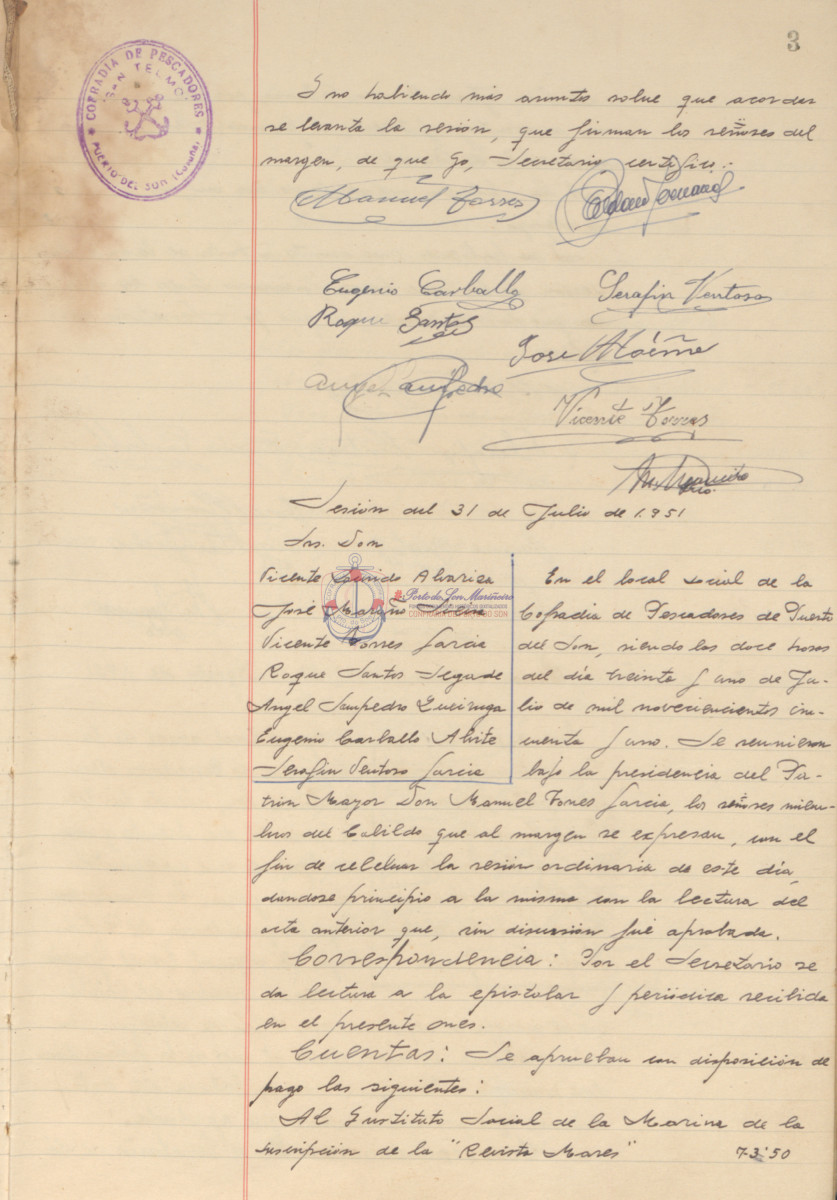 3
COFRADIA DE PESCADORES
"SAN TELMO"
PUERTO DEL SON (Coruña)
Y no habiendo más asuntos sobre que acordar
se levanta la sesión, que firman los señores del
margen, de que yo, Secretario certifico.-
Manuel Torres
Eugenio Carballo
Serafin Ventoso
Roque Santos
Jose
Angel Sampedro
Vicente Torres
Sesión del 31 de Julio de 1.951
Srs. Don
Vicente Alvariza
José Maroño
Vicente Torres Garcia
Roque Santos Segade
Angel Sampedro Queiruga
Eugenio Carballo Ahite
Serafin Ventoso Garcia
Porto do Son Mariñeiro
En el local social de la
Cofradia de Pescadores de Puerto
del Son, siendo las doce horas
del día treinta y uno de Ju-
lio de mil novecientos cin-
cuenta y uno. Se reunieron
bajo la presidencia del Pa-
trón Mayor Don Manuel Torres Garcia, los señores miem-
bros del Cabildo que al margen se expresan, con el
fin de celebrar la sesión ordinaria de este día,
dandose principio a la misma con la lectura del
acta anterior que, sin discusión fué aprobada.
Correspondencia: Por el Secretario se
da lectura a la epistolar y periódica recibida
en el presente mes.
Cuentas: Se aprueban con disposición de
pago las siguientes:
Al Instituto Social de la Marina de la
suscripción de la "Revista Mares" 73'50